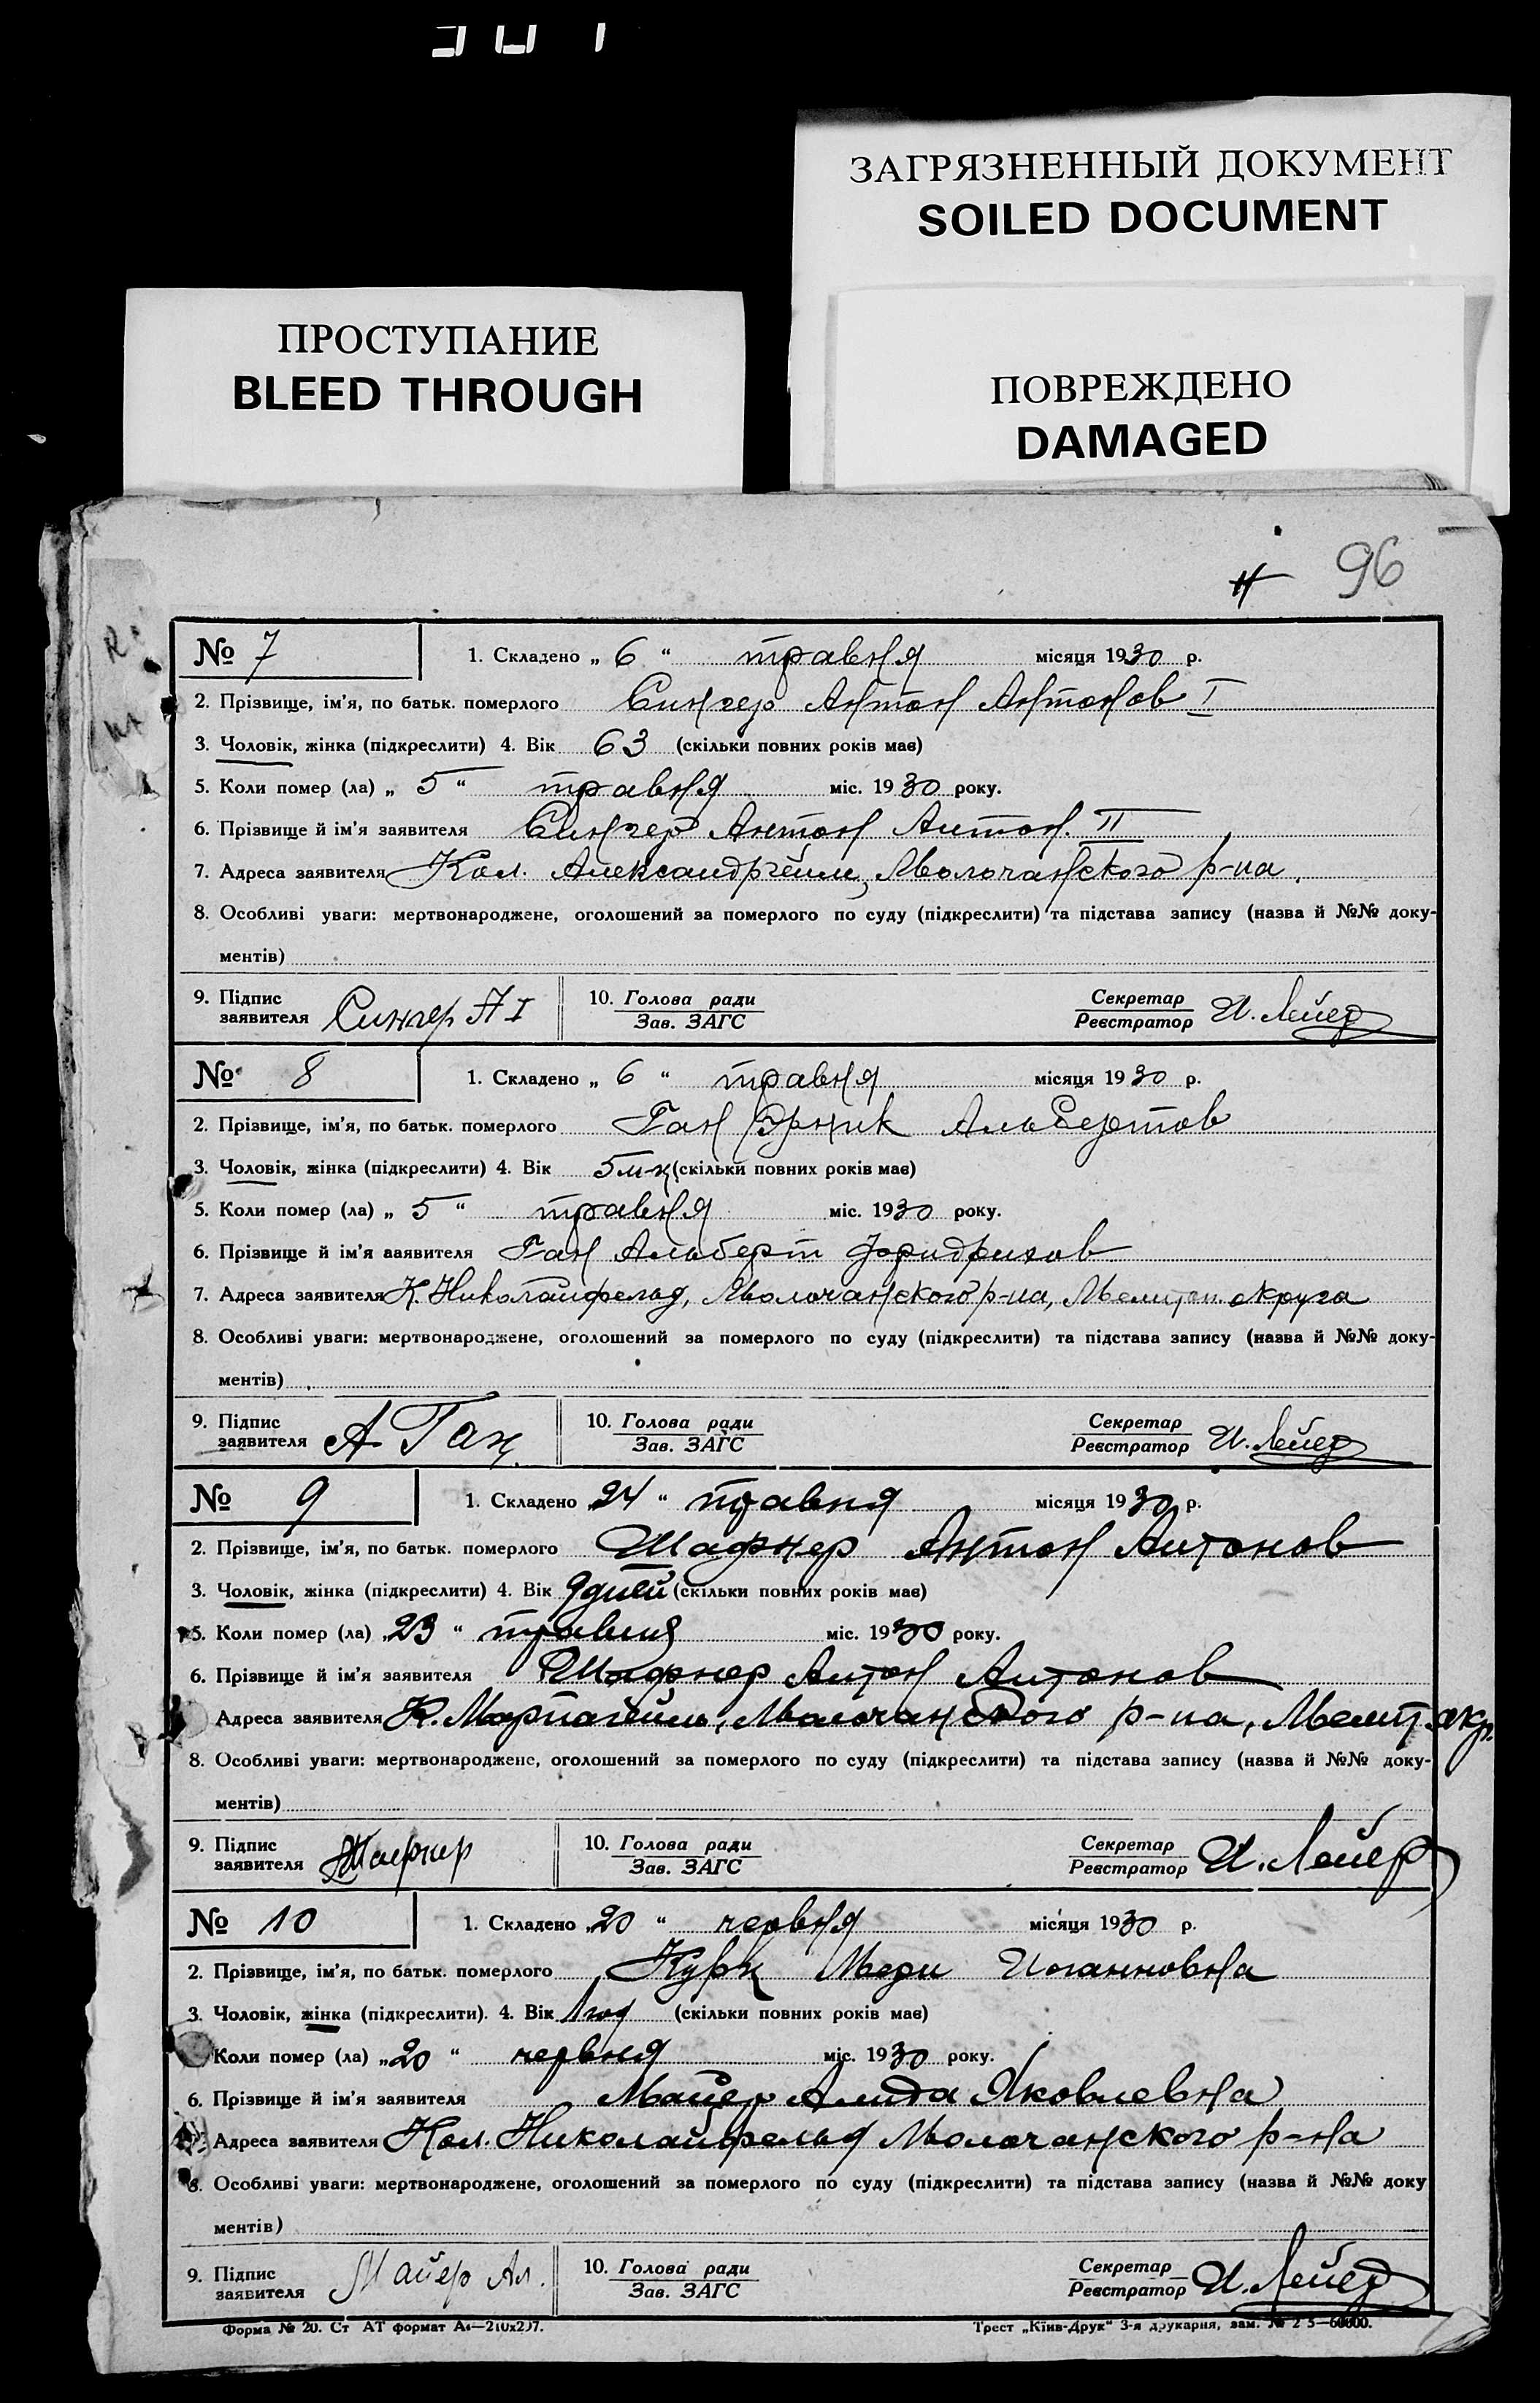 ЗАГРЯЗНЕННЫЙ ДОКУМЕНТ
SOILED DOCUMENT
ПРОСТУПАНИЕ
BLEED THROUGH
ПОВРЕЖДЕНО
DAMAGED
96
№ 7 1. Складено „ 6 “ травня місяця 1930 р.
2. Прізвище, ім’я, по батьк. померлого Сингер Антон Антонов I
3. Чоловік, жінка (підкреслити) 4. Вік 63 (скільки повних років має)
5. Коли помер (ла) „ 5 “ травня міс. 1930 року.
6. Прізвище й ім’я заявителя Сингер Антон Антон. II
7. Адреса заявителя Кол. Александргейм, Молочанского р-на.
8. Особливі уваги: мертвонароджене, оголошений за померлого по суду (підкреслити) та підстава запису (назва й №№ доку-
ментів)
9. Підпис заявителя Сингер А I 10. Голова ради Зав. ЗАГС Секретар Реєстратор И. Лейер
№ 8 1. Складено „ 6 “ травня місяця 1930 р.
2. Прізвище, ім’я, по батьк. померлого Ган Эрник Альбертов
3. Чоловік, жінка (підкреслити) 4. Вік 5 м-ц (скільки повних років має)
5. Коли помер (ла) „ 5 “ травня міс. 1930 року.
6. Прізвище й ім’я заявителя Ган Альберт Фридрихов
7. Адреса заявителя К. Николайфельд, Молочанского р-на, Мелитоп. округа
8. Особливі уваги: мертвонароджене, оголошений за померлого по суду (підкреслити) та підстава запису (назва й №№ доку-
ментів)
9. Підпис заявителя А Ган 10. Голова ради Зав. ЗАГС Секретар Реєстратор И. Лейер
№ 9 1. Складено „24 “ травня місяця 1930 р.
2. Прізвище, ім’я, по батьк. померлого Шафнер Антон Антонов
3. Чоловік, жінка (підкреслити) 4. Вік 9 дней (скільки повних років має)
5. Коли помер (ла) „23 “ травня міс. 1930 року.
6. Прізвище й ім’я заявителя Шафнер Антон Антонов
Адреса заявителя К. Мариагейм, Молочанского р-на, Мелит. окр.
8. Особливі уваги: мертвонароджене, оголошений за померлого по суду (підкреслити) та підстава запису (назва й №№ доку-
ментів)
9. Підпис заявителя Шафнер 10. Голова ради Зав. ЗАГС Секретар Реєстратор И. Лейер
№ 10 1. Складено „20 “ червня місяця 1930 р.
2. Прізвище, ім’я, по батьк. померлого Курк Мери Иоганновна
3. Чоловік, жінка (підкреслити). 4. Вік 1 год (скільки повних років має)
Коли помер (ла) „20 “ червня міс. 1930 року.
6. Прізвище й ім’я заявителя Майер Алида Яковлевна
Адреса заявителя Кол. Николайфельд Молочанского р-на
8. Особливі уваги: мертвонароджене, оголошений за померлого по суду (підкреслити) та підстава запису (назва й №№ доку
ментів)
9. Підпис заявителя Майер Ал. 10. Голова ради Зав. ЗАГС Секретар Реєстратор И. Лейер
Форма № 20. Ст АТ формат А4—210х297. Трест „Київ-Друк“ 3-я друкарня, зам. №